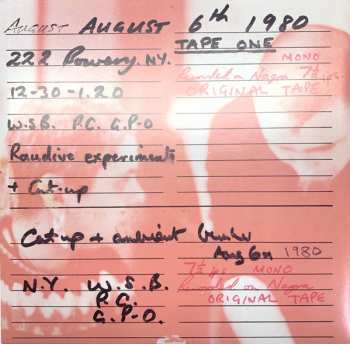 AUGUST AUGUST 6th 1980
TAPE ONE
222 Bowery, N.Y. MONO
Recorded on Nagra 7½ ips
12-30-1.20 ORIGINAL TAPE
W.S.B. P.C. G.P-O
Raudive experiments
+ Cut-up
Cut-up + ambient
Aug 6th 1980
7½ ips MONO
N.Y. W.S.B. Recorded on Nagra
P.C. ORIGINAL TAPE
G.P-O.